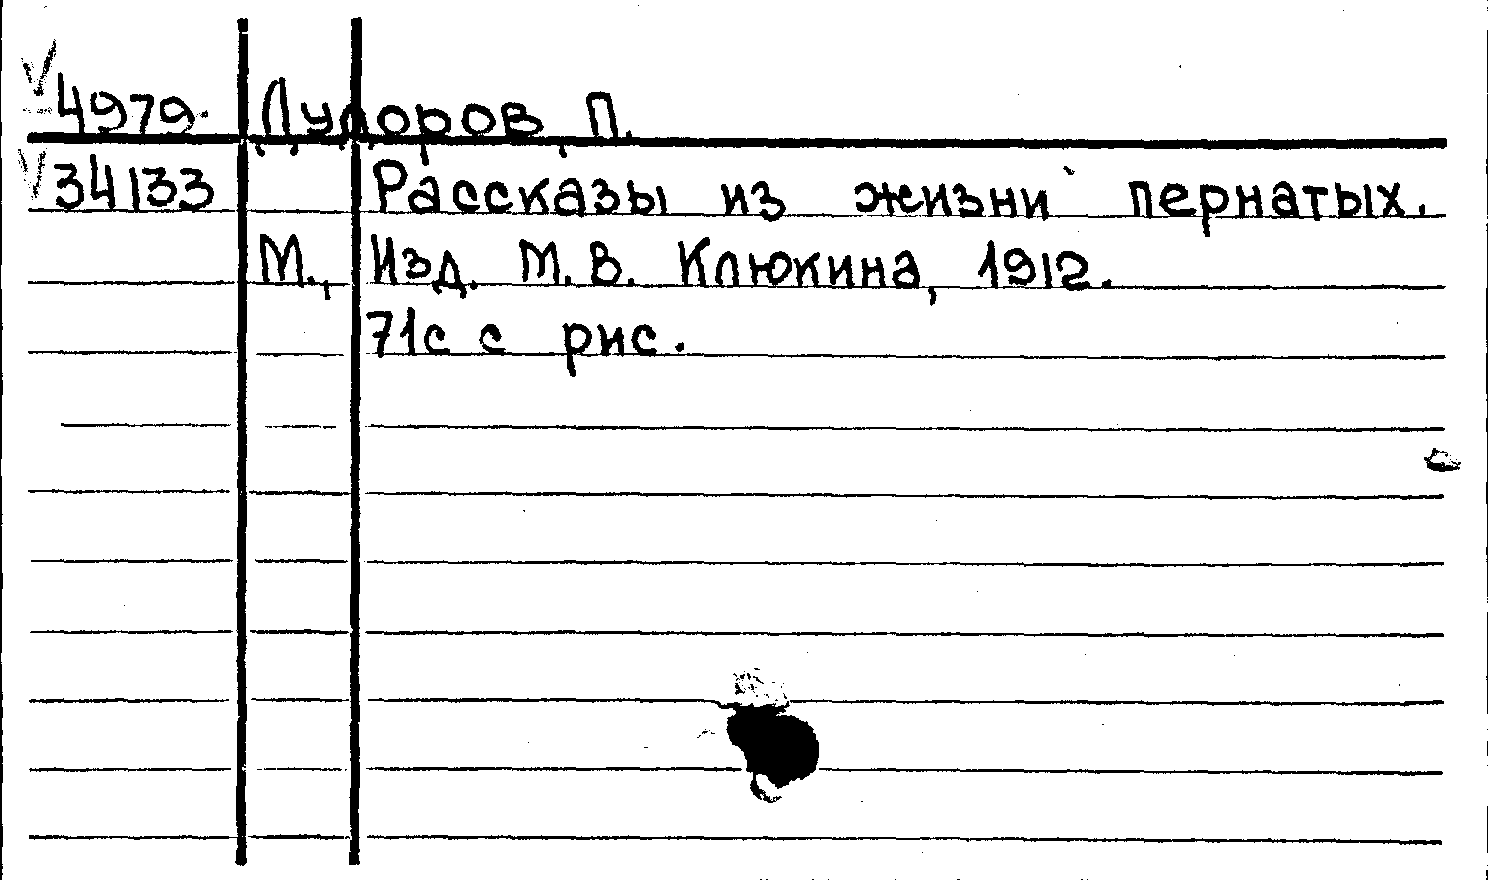 4979. Дудоров, П.
34133 Рассказы из жизни пернатых.
М., Изд. М.В. Клюкина, 1912.
71с с рис.